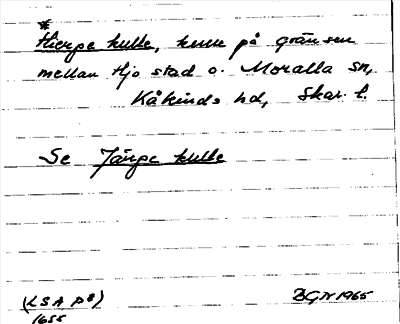 *
Hierpe kulle, kulle på gränsen
mellan Hjo stad o. Moralla sn,
Kåkinds hd, Skar. l.
Se Järpe kulle
(LSA P8)
1655
BGN 1965